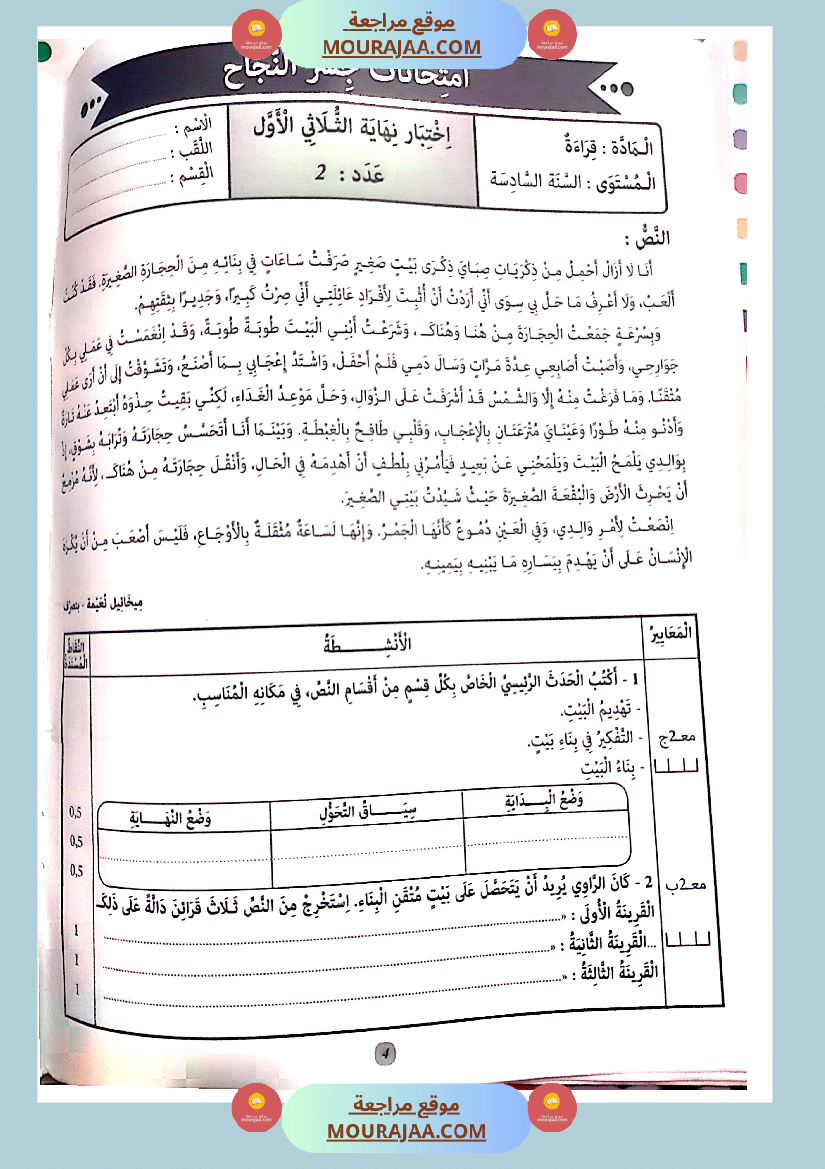 موقع مراجعة
MOURAJAA.COM
امتحانات جسر النجاح
الْمَادَّة : قِرَاءَةٌ
الْمُسْتَوَى : السَّنَة السَّادِسَة
اِخْتِبَار نِهَايَة الثُّلَاثِي الْأَوَّل
عَدَد : 2
الْاسْم :
اللَّقَب :
الْقِسْم :
النَّصُّ :
أَنَا لَا أَزَالُ أَحْمِلُ مِنْ ذِكْرَيَاتِ صِبَايَ ذِكْرَى بَيْتٍ صَغِيرٍ صَرَفْتُ سَاعَاتٍ فِي بِنَائِهِ مِنَ الْحِجَارَةِ الصَّغِيرَةِ. فَقَدْ كُنْتُ
أَلْعَبُ، وَلَا أَعْرِفُ مَا حَلَّ بِي سِوَى أَنِّي أَرَدْتُ أَنْ أُثْبِتَ لِأَفْرَادِ عَائِلَتِي أَنِّي صِرْتُ كَبِيرًا، وَجَدِيرًا بِثِقَتِهِمْ.
وَبِسُرْعَةٍ جَمَعْتُ الْحِجَارَةَ مِنْ هُنَا وَهُنَاكَ، وَشَرَعْتُ أَبْنِي الْبَيْتَ طُوبَةً طُوبَةً، وَقَدْ اِنْغَمَسْتُ فِي عَمَلِي بِكُلِّ
جَوَارِحِي، وَأَصَبْتُ أَصَابِعِي عِدَّةَ مَرَّاتٍ وَسَالَ دَمِي فَلَمْ أَحْفَلْ، وَاشْتَدَّ إِعْجَابِي بِمَا أَصْنَعُ، وَتَشَوَّقْتُ إِلَى أَنْ أَرَى عَمَلِي
مُتْقَنًا. وَمَا فَرَغْتُ مِنْهُ إِلَّا وَالشَّمْسُ قَدْ أَشْرَفَتْ عَلَى الزَّوَالِ، وَحَلَّ مَوْعِدُ الْغَدَاءِ، لَكِنِّي بَقِيتُ حِذْوَهُ أَبْتَعِدُ عَنْهُ تَارَةً
وَأَدْنُو مِنْهُ طَوْرًا وَعَيْنَايَ مُتْرَعَتَانِ بِالْإِعْجَابِ، وَقَلْبِي طَافِحٌ بِالْغِبْطَةِ. وَبَيْنَمَا أَنَا أَتَحَسَّسُ حِجَارَتَهُ وَتُرَابَهُ بِشَوْقٍ، إِذَا
بِوَالِدِي يَلْمَحُ الْبَيْتَ وَيَلْمَحُنِي عَنْ بَعِيدٍ فَيَأْمُرُنِي بِلُطْفٍ أَنْ أَهْدِمَهُ فِي الْحَالِ، وَأَنْقُلَ حِجَارَتَهُ مِنْ هُنَاكَ، لِأَنَّهُ مُزْمِعٌ
أَنْ يَحْرِثَ الْأَرْضَ وَالْبُقْعَةَ الصَّغِيرَةَ حَيْثُ شَيَّدْتُ بَيْتِي الصَّغِيرَ.
اِنْصَعْتُ لِأَمْرِ وَالِدِي، وَفِي الْعَيْنِ دُمُوعٌ كَأَنَّهَا الْجَمْرُ. وَإِنَّهَا لَسَاعَةٌ مُثْقَلَةٌ بِالْأَوْجَاعِ، فَلَيْسَ أَصْعَبَ مِنْ أَنْ يُكْرَهَ
الْإِنْسَانُ عَلَى أَنْ يَهْدِمَ بِيَسَارِهِ مَا يَبْنِيهِ بِيَمِينِهِ.
مِيخَائِيل نُعَيْمة - بتصرّف
الْمَعَايِيرُ
الْأَنْشِطَةُ
النِّقَاطُ الْمُسْنَدَةُ
1 - أَكْتُبُ الْحَدَثَ الرَّئِيسِيَّ الْخَاصَّ بِكُلِّ قِسْمٍ مِنْ أَقْسَامِ النَّصِّ، فِي مَكَانِهِ الْمُنَاسِبِ.
- تَهْدِيمُ الْبَيْتِ.
- التَّفْكِيرُ فِي بِنَاءِ بَيْتٍ.
معـ2ج
- بِنَاءُ الْبَيْتِ
وَضْعُ الْبِدَايَةِ
سِيَاقُ التَّحَوُّلِ
وَضْعُ النِّهَايَةِ
0,5
0,5
0,5
معـ2ب
2 - كَانَ الرَّاوِي يُرِيدُ أَنْ يَتَحَصَّلَ عَلَى بَيْتٍ مُتْقَنِ الْبِنَاءِ. اِسْتَخْرِجْ مِنَ النَّصِّ ثَلَاثَ قَرَائِنَ دَالَّةً عَلَى ذَلِكَ
الْقَرِينَةُ الْأُولَى : «
1
...الْقَرِينَةُ الثَّانِيَةُ : «
1
الْقَرِينَةُ الثَّالِثَةُ : «
1
4
موقع مراجعة
MOURAJAA.COM